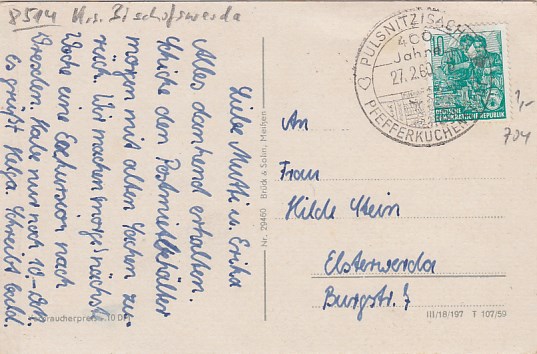 8514 Krs. Bischofswerda
Liebe Mutti u. Erika
Alles dankend erhalten.
Schicke den Postmilchbehälter
morgen mit alten Sachen zu-
rück. Wir machen morgs nächst
Woche eine Exkursion nach
Dresden. Habe nur noch 10-DM.
Es grüßt Helga. Schreibt bald.
Verbraucherpreis 10 DPf
Nr. 29460 Brück & Sohn, Meißen
PULSNITZ (SACHS)
400
Jahre
27.2.60
PFEFFERKUCHEN
10
DEUTSCHE
DEMOKRATISCHE REPUBLIK
5
1,-
704
An
Frau
Hilde Stein
Elsterwerda
Burgstr. 7
III/18/197 T 107/59